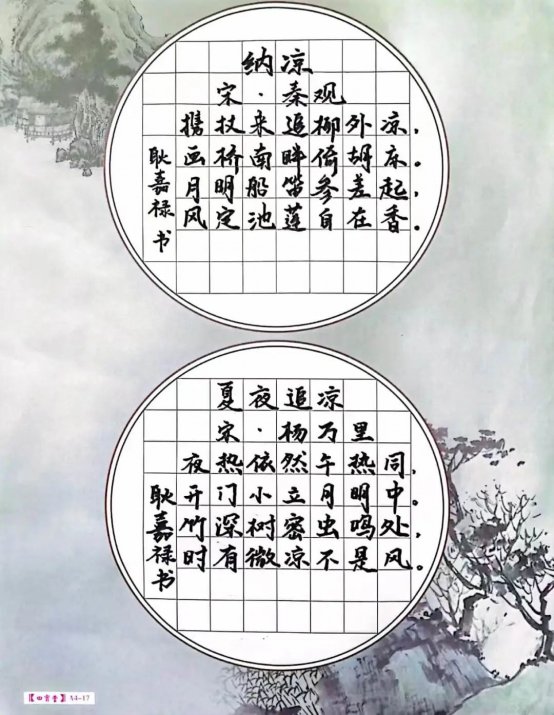 纳凉
宋·秦观
携扙来追柳外凉，
画桥南畔倚胡床。
月明船笛参差起，
风定池莲自在香。
耿嘉禄书
夏夜追凉
宋·杨万里
夜热依然午热同，
开门小立月明中。
竹深树密虫鸣处，
时有微凉不是风。
耿嘉禄书
【四宝堂】A4-17